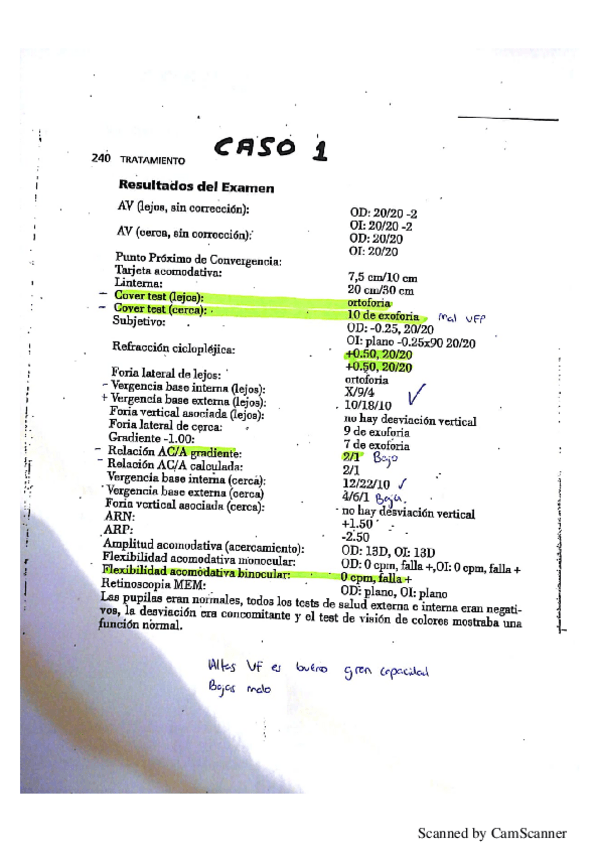 CASO 1
240 TRATAMIENTO
Resultados del Examen
AV (lejos, sin corrección): OD: 20/20 -2
OI: 20/20 -2
AV (cerca, sin corrección): OD: 20/20
OI: 20/20
Punto Próximo de Convergencia:
Tarjeta acomodativa: 7,5 cm/10 cm
Linterna: 20 cm/30 cm
- Cover test (lejos): ortoforia
- Cover test (cerca): 10 de exoforia mal VFP
Subjetivo: OD: -0.25, 20/20
OI: plano -0.25x90 20/20
Refracción ciclopléjica: +0.50, 20/20
+0.50, 20/20
Foria lateral de lejos: ortoforia
- Vergencia base interna (lejos): X/9/4
+ Vergencia base externa (lejos): 10/18/10 ✓
Foria vertical asociada (lejos): no hay desviación vertical
Foria lateral de cerca: 9 de exoforia
Gradiente -1.00: 7 de exoforia
- Relación AC/A gradiente: 2/1 Bajo
- Relación AC/A calculada: 2/1
Vergencia base interna (cerca): 12/22/10 ✓
Vergencia base externa (cerca) 4/6/1 Baja.
Foria vertical asociada (cerca): no hay desviación vertical
ARN: +1.50
ARP: -2.50
Amplitud acomodativa (acercamiento): OD: 13D, OI: 13D
Flexibilidad acomodativa monocular: OD: 0 cpm, falla +,OI: 0 cpm, falla +
Flexibilidad acomodativa binocular: 0 cpm, falla +
Retinoscopia MEM: OD: plano, OI: plano
Las pupilas eran normales, todos los tests de salud externa e interna eran negati-
vos, la desviación era concomitante y el test de visión de colores mostraba una
función normal.
Altas VF es bueno gran capacidad
Bajas malo
Scanned by CamScanner